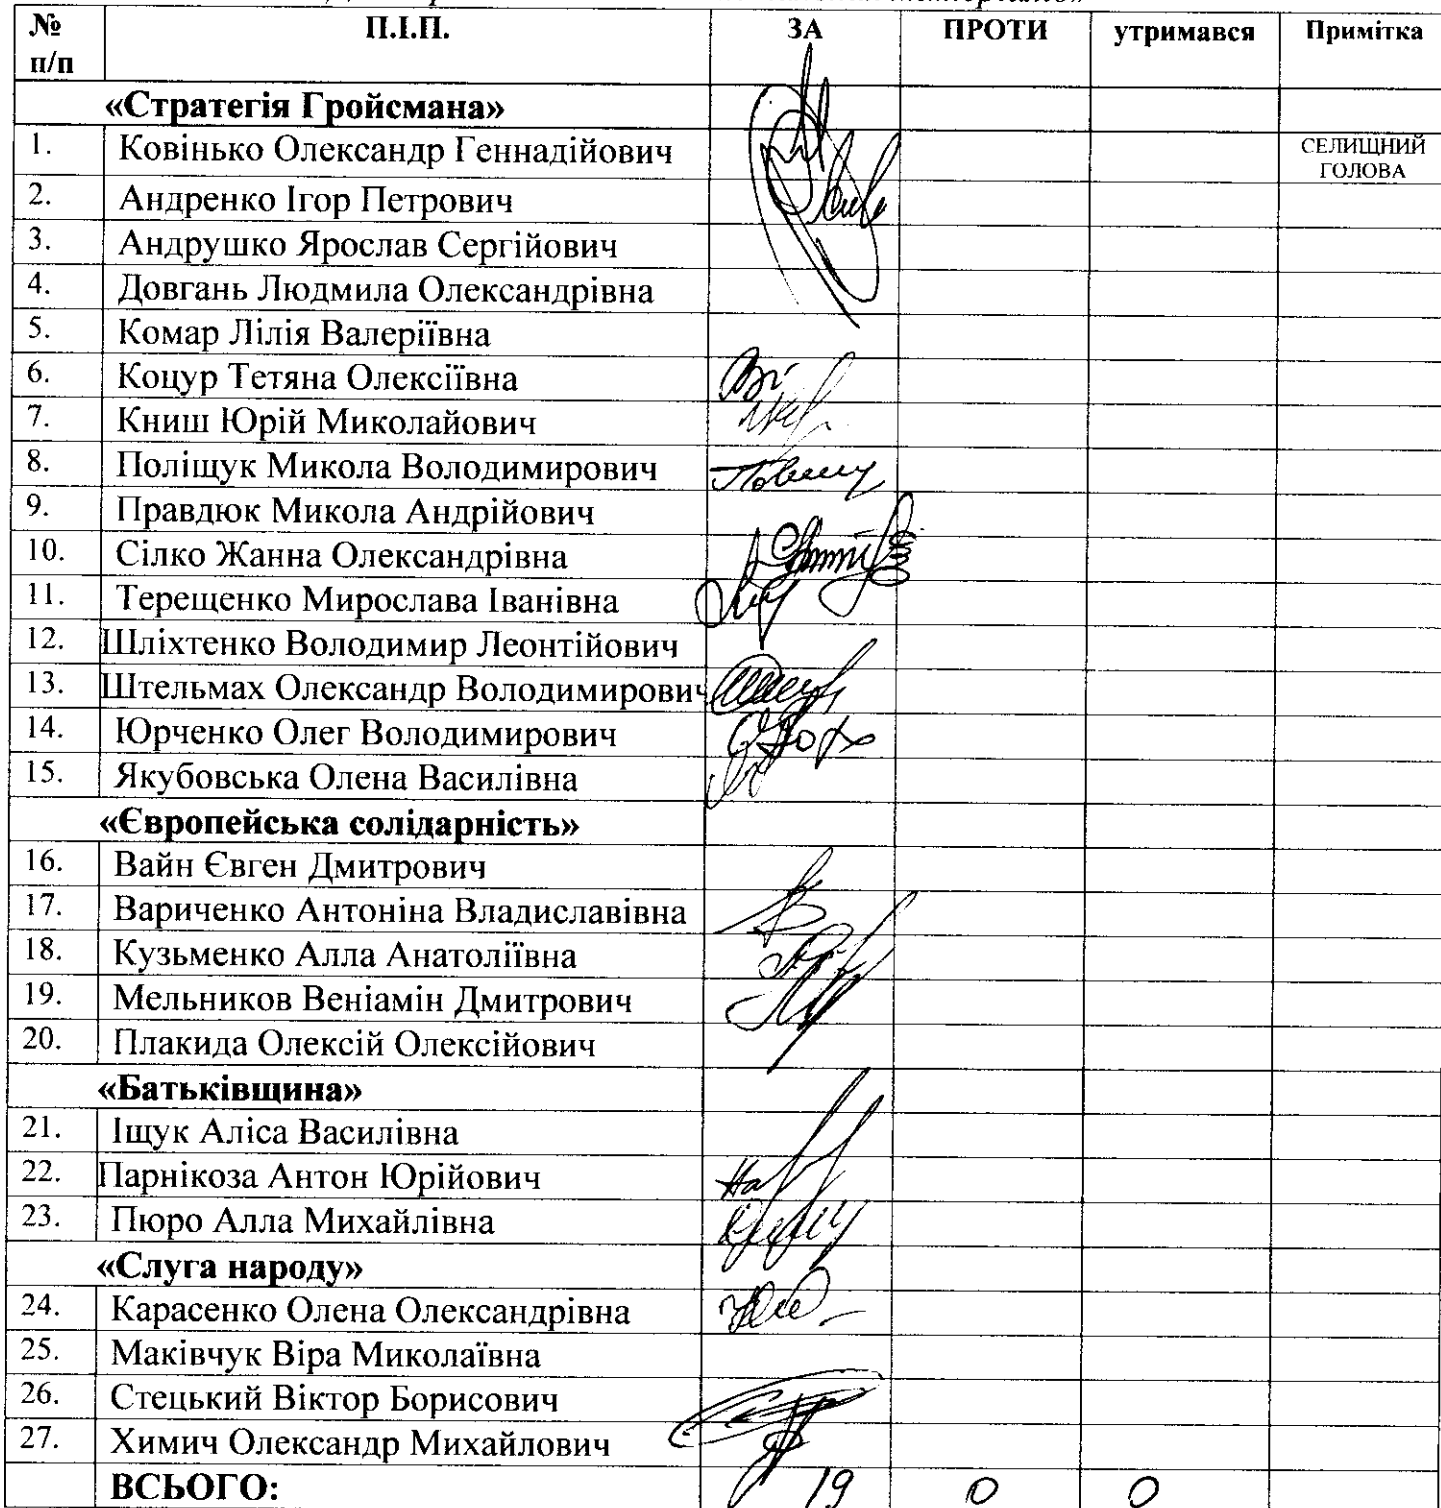 № П.І.П. ЗА ПРОТИ утримався Примітка
п/п
«Стратегія Гройсмана»
1. Ковінько Олександр Геннадійович СЕЛИЩНИЙ
ГОЛОВА
2. Андренко Ігор Петрович
3. Андрушко Ярослав Сергійович
4. Довгань Людмила Олександрівна
5. Комар Лілія Валеріївна
6. Коцур Тетяна Олексіївна
7. Книш Юрій Миколайович
8. Поліщук Микола Володимирович
9. Правдюк Микола Андрійович
10. Сілко Жанна Олександрівна
11. Терещенко Мирослава Іванівна
12. Шліхтенко Володимир Леонтійович
13. Штельмах Олександр Володимирович
14. Юрченко Олег Володимирович
15. Якубовська Олена Василівна
«Європейська солідарність»
16. Вайн Євген Дмитрович
17. Вариченко Антоніна Владиславівна
18. Кузьменко Алла Анатоліївна
19. Мельников Веніамін Дмитрович
20. Плакида Олексій Олексійович
«Батьківщина»
21. Іщук Аліса Василівна
22. Парнікоза Антон Юрійович
23. Пюро Алла Михайлівна
«Слуга народу»
24. Карасенко Олена Олександрівна
25. Маківчук Віра Миколаївна
26. Стецький Віктор Борисович
27. Химич Олександр Михайлович
ВСЬОГО: 19 0 0